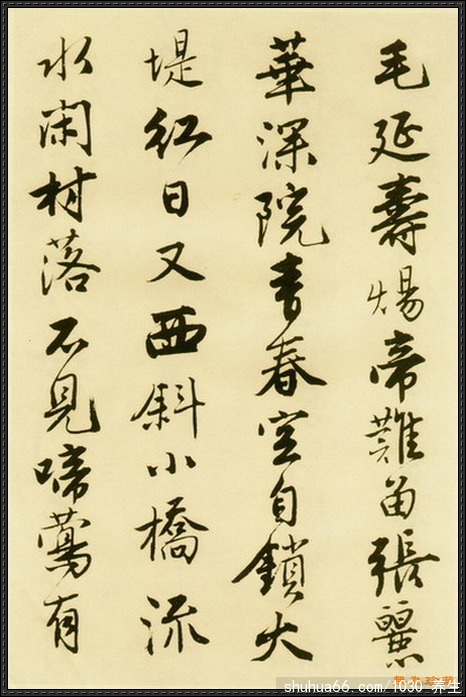 毛延壽煬帝難留張麗
華深院青春空自鎖大
堤紅日又西斜小橋流
水閑村落不見啼鶯有
shuhua66.com/1030 养生